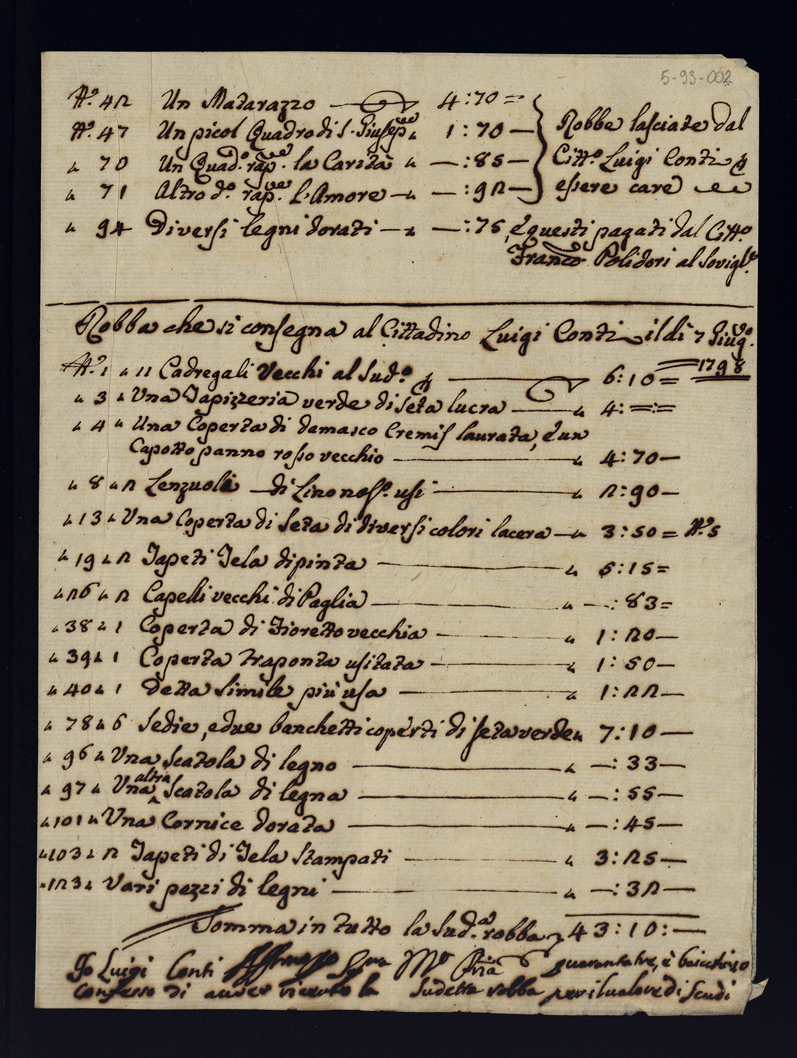 5-93-002
N.o 42 Un Matarazzo 4:70=
N.o 47 Un picol Quadro di S. Giusep.e " 1:70—
" 70 Un Quad.o rap.te la Carita " —:85—
" 71 Altro d.o rap.te l'Amore — " —:92—
Robbe lasciate dal
Citt.o Luigi Conti p
essere care
" 94 Diversi legni dorati — " —:75, e questi pagati dal Citt.o
Franco Polidori al Sovigl.e
Robba che si consegna al Cittadino Luigi Conti il di 7 Giug.o
1798
N.o 1 " 11 Cadregali Vecchi al Sud.o p 6:10=
" 3 " Una Tapizzeria verde di seta lucra — " 4:=:=
" 4 " Una Coperta di damasco Cremis laurata, e un
Capotto panno rosso vecchio — " 4:70—
" 8 " 2 Lenzuoli di Lino nos.i usi — " 2:90—
" 13 " Una Coperta di seta di diversi colori lacera — " 3:50= N.o 5
" 19 " 2 Tapeti Tela dipinta — " 6:15=
" 26 " 2 Capelli vecchi di Paglia — " —:83=
" 38 " 1 Coperta di Fioretto vecchia — " 1:20—
" 39 " 1 Coperta traponta usitata — " 1:50—
" 40 " 1 detta simile più usa — " 1:22—
" 78 " 6 Sedie, e due banchetti coperti di seta verde " 7:10—
" 96 " Una Scatola di legno — " —:33—
" 97 " Una altra Scatola di legna — " —:55—
" 101 " Una Cornice dorata — " —:45—
" 103 " 2 Tapeti di Tela Stampati — " 3:25—
" 123 " Vari pezzi di legni — " —:32—
Somma in tutto la Sud.a robba 43:10:—
Io Luigi Conti Affermo quarantatre, e baiochi 10
Confesso di aver ricevuto la sudetta robba per il valore di scudi